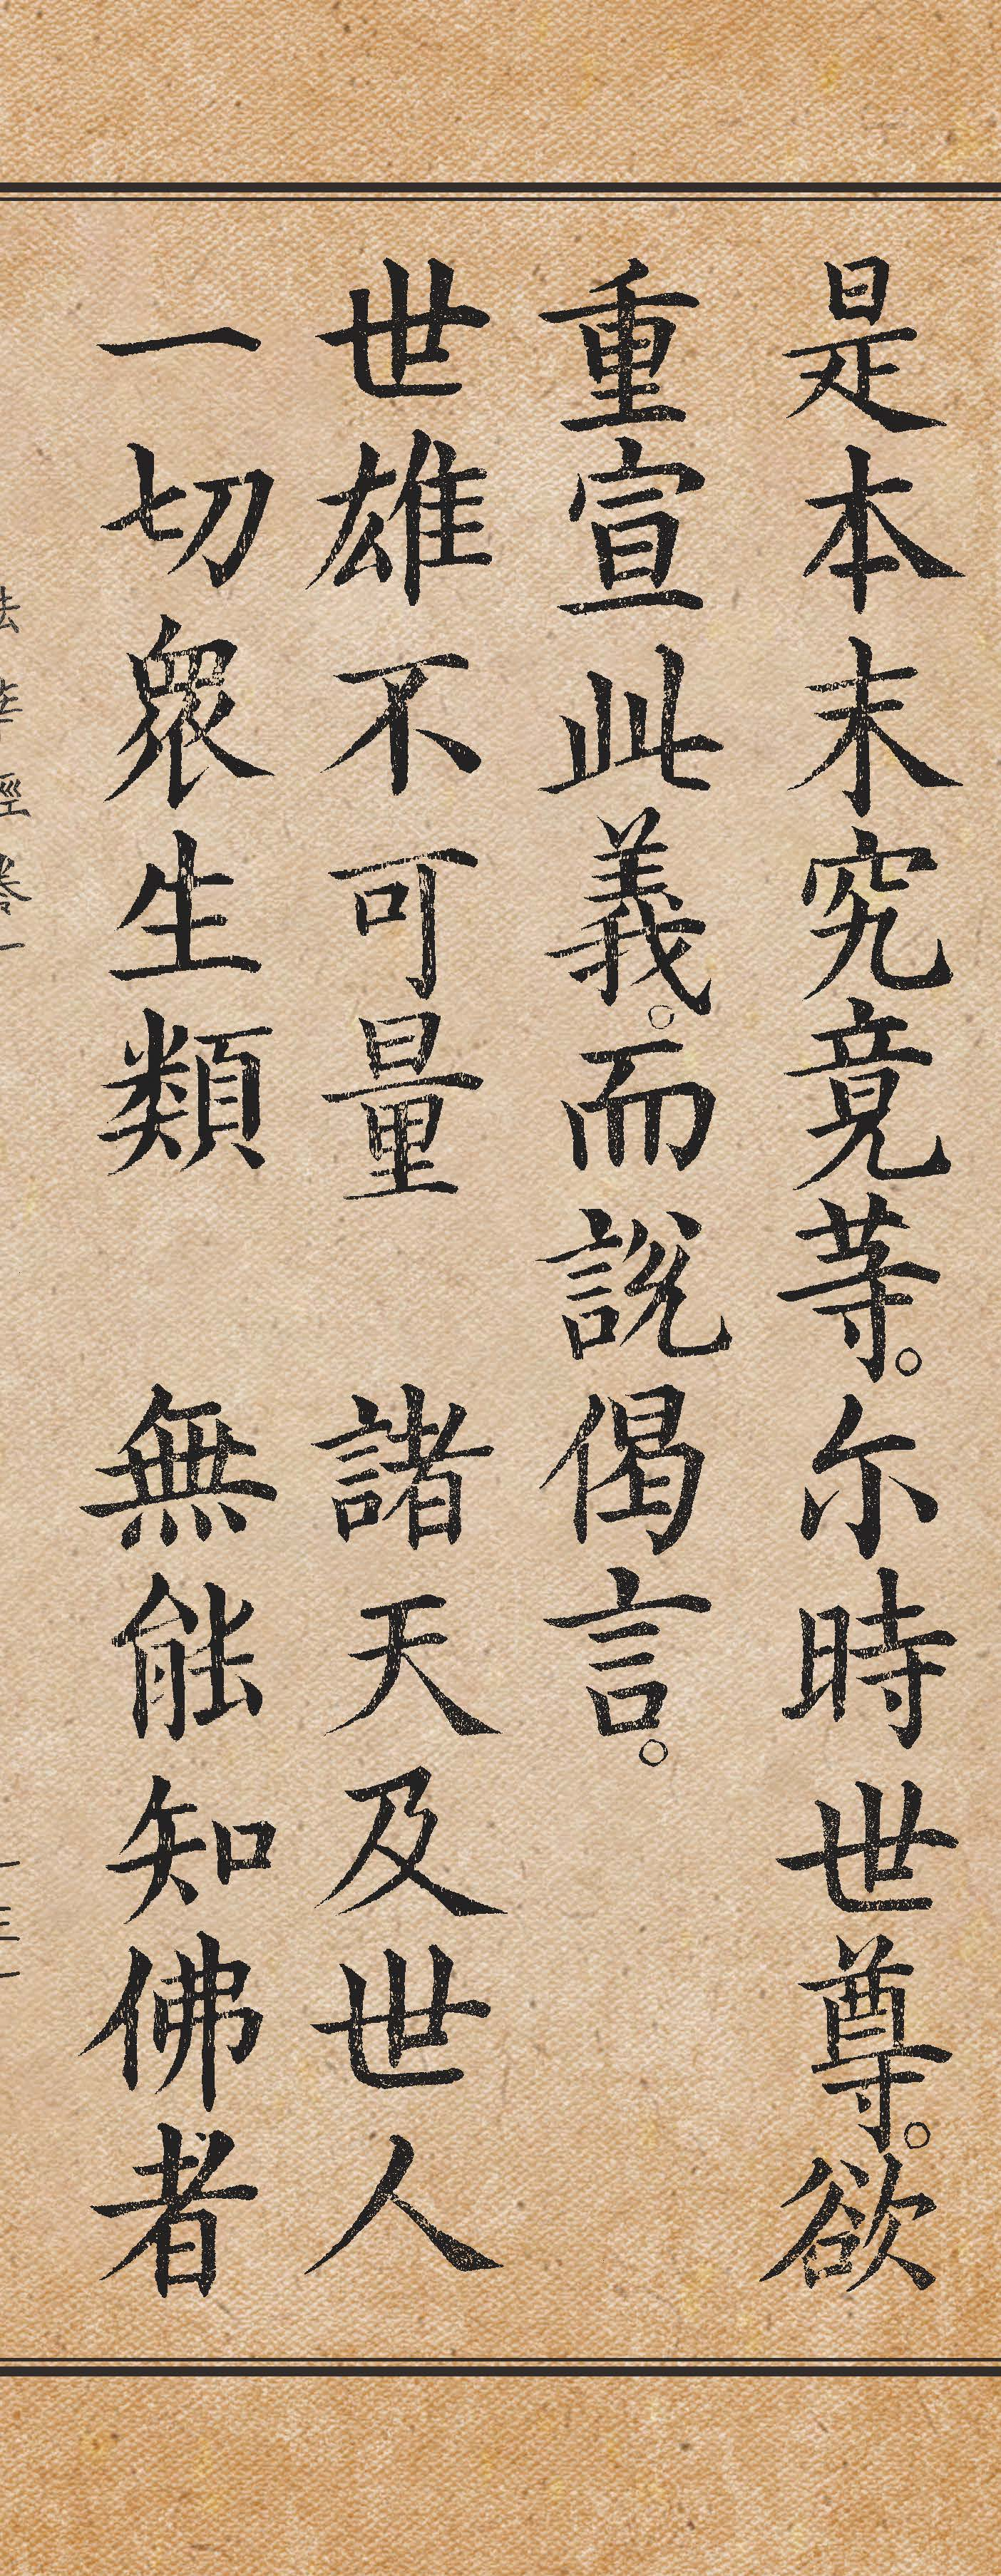 是本末究竟等。尔時世尊。欲
重宣此義。而說偈言。
世雄不可量　諸天及世人
一切眾生類　無能知佛者
法華經卷一